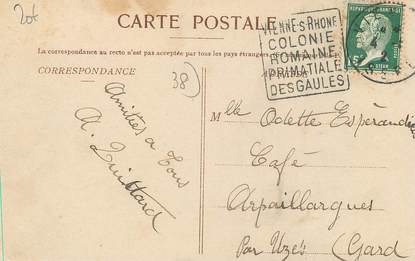 20f
CARTE POSTALE
La correspondance au recto n'est pas acceptée par tous les pays étrangers
CORRESPONDANCE
38
Amitiés a tous
A. Quittard
VIENNE-S-RHONE
COLONIE
ROMAINE
PRIMATIALE
DES GAULES
Mlle Odette Espérandieu
Café
Arpaillargues
Par Uzès (Gard